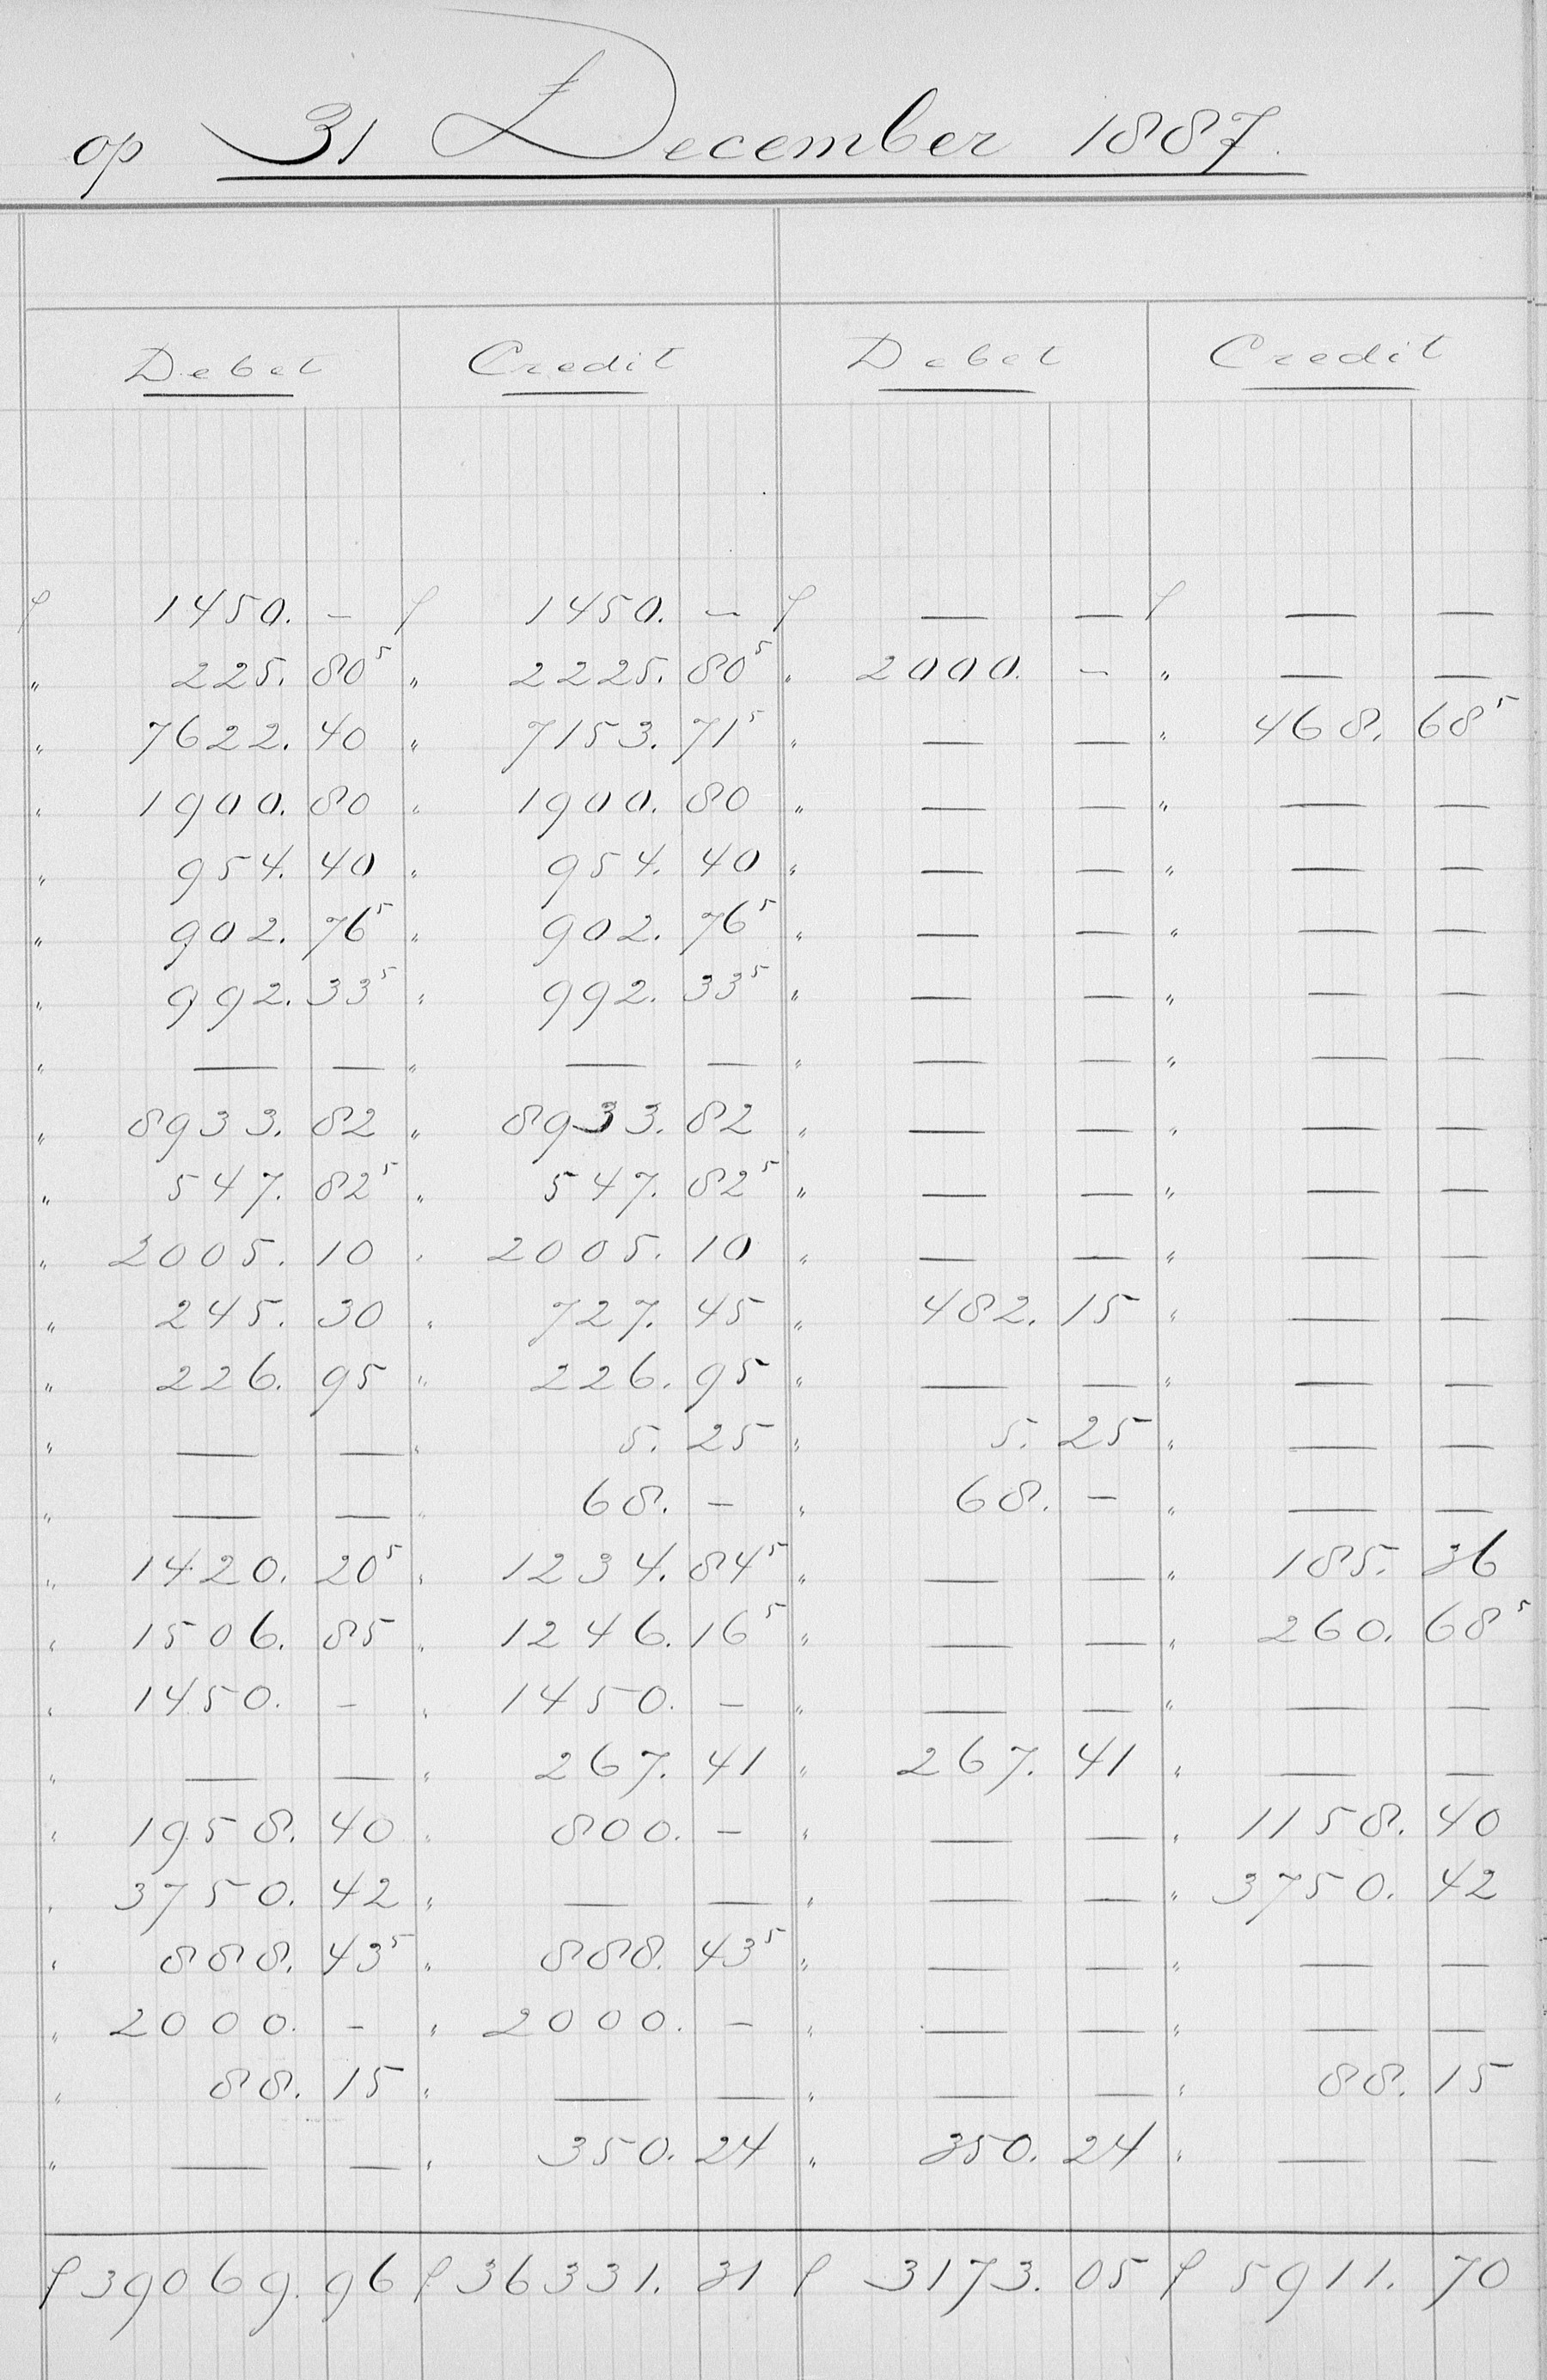 op 31 December 1887.
Debet Credit Debet Credit
ƒ 1450. - ƒ 1450. - ƒ — — ƒ — —
" 225. 80⁵ " 2225. 80⁵ " 2000. - " — —
" 7622. 40 " 7153. 71⁵ " — — " 468. 68⁵
" 1900. 80 " 1900. 80 " — — " — —
" 954. 40 " 954. 40 " — — " — —
" 902. 76⁵ " 902. 76⁵ " — — " — —
" 992. 33⁵ " 992. 33⁵ " — — " — —
" — — " — — " — — " — —
" 8933. 82 " 8933. 82 " — — " — —
" 547. 82⁵ " 547. 82⁵ " — — " — —
" 2005. 10 " 2005. 10 " — — " — —
" 245. 30 " 727. 45 " 482. 15 " — —
" 226. 95 " 226. 95 " — — " — —
" — — " 5. 25 " 5. 25 " — —
" — — " 68. - " 68. - " — —
" 1420. 20⁵ " 1234. 84⁵ " — — " 185. 36
" 1506. 85 " 1246. 16⁵ " — — " 260. 68⁵
" 1450. - " 1450. - " — — " — —
" — — " 267. 41 " 267. 41 " — —
" 1958. 40 " 800. - " — — " 1158. 40
" 3750. 42 " — — " — — " 3750. 42
" 888. 43⁵ " 888. 43⁵ " — — " — —
" 2000. - " 2000. - " — — " — —
" 88. 15 " — — " — — " 88. 15
" — — " 350. 24 " 350. 24 " — —
ƒ 39069. 96 ƒ 36331. 31 ƒ 3173. 05 ƒ 5911. 70